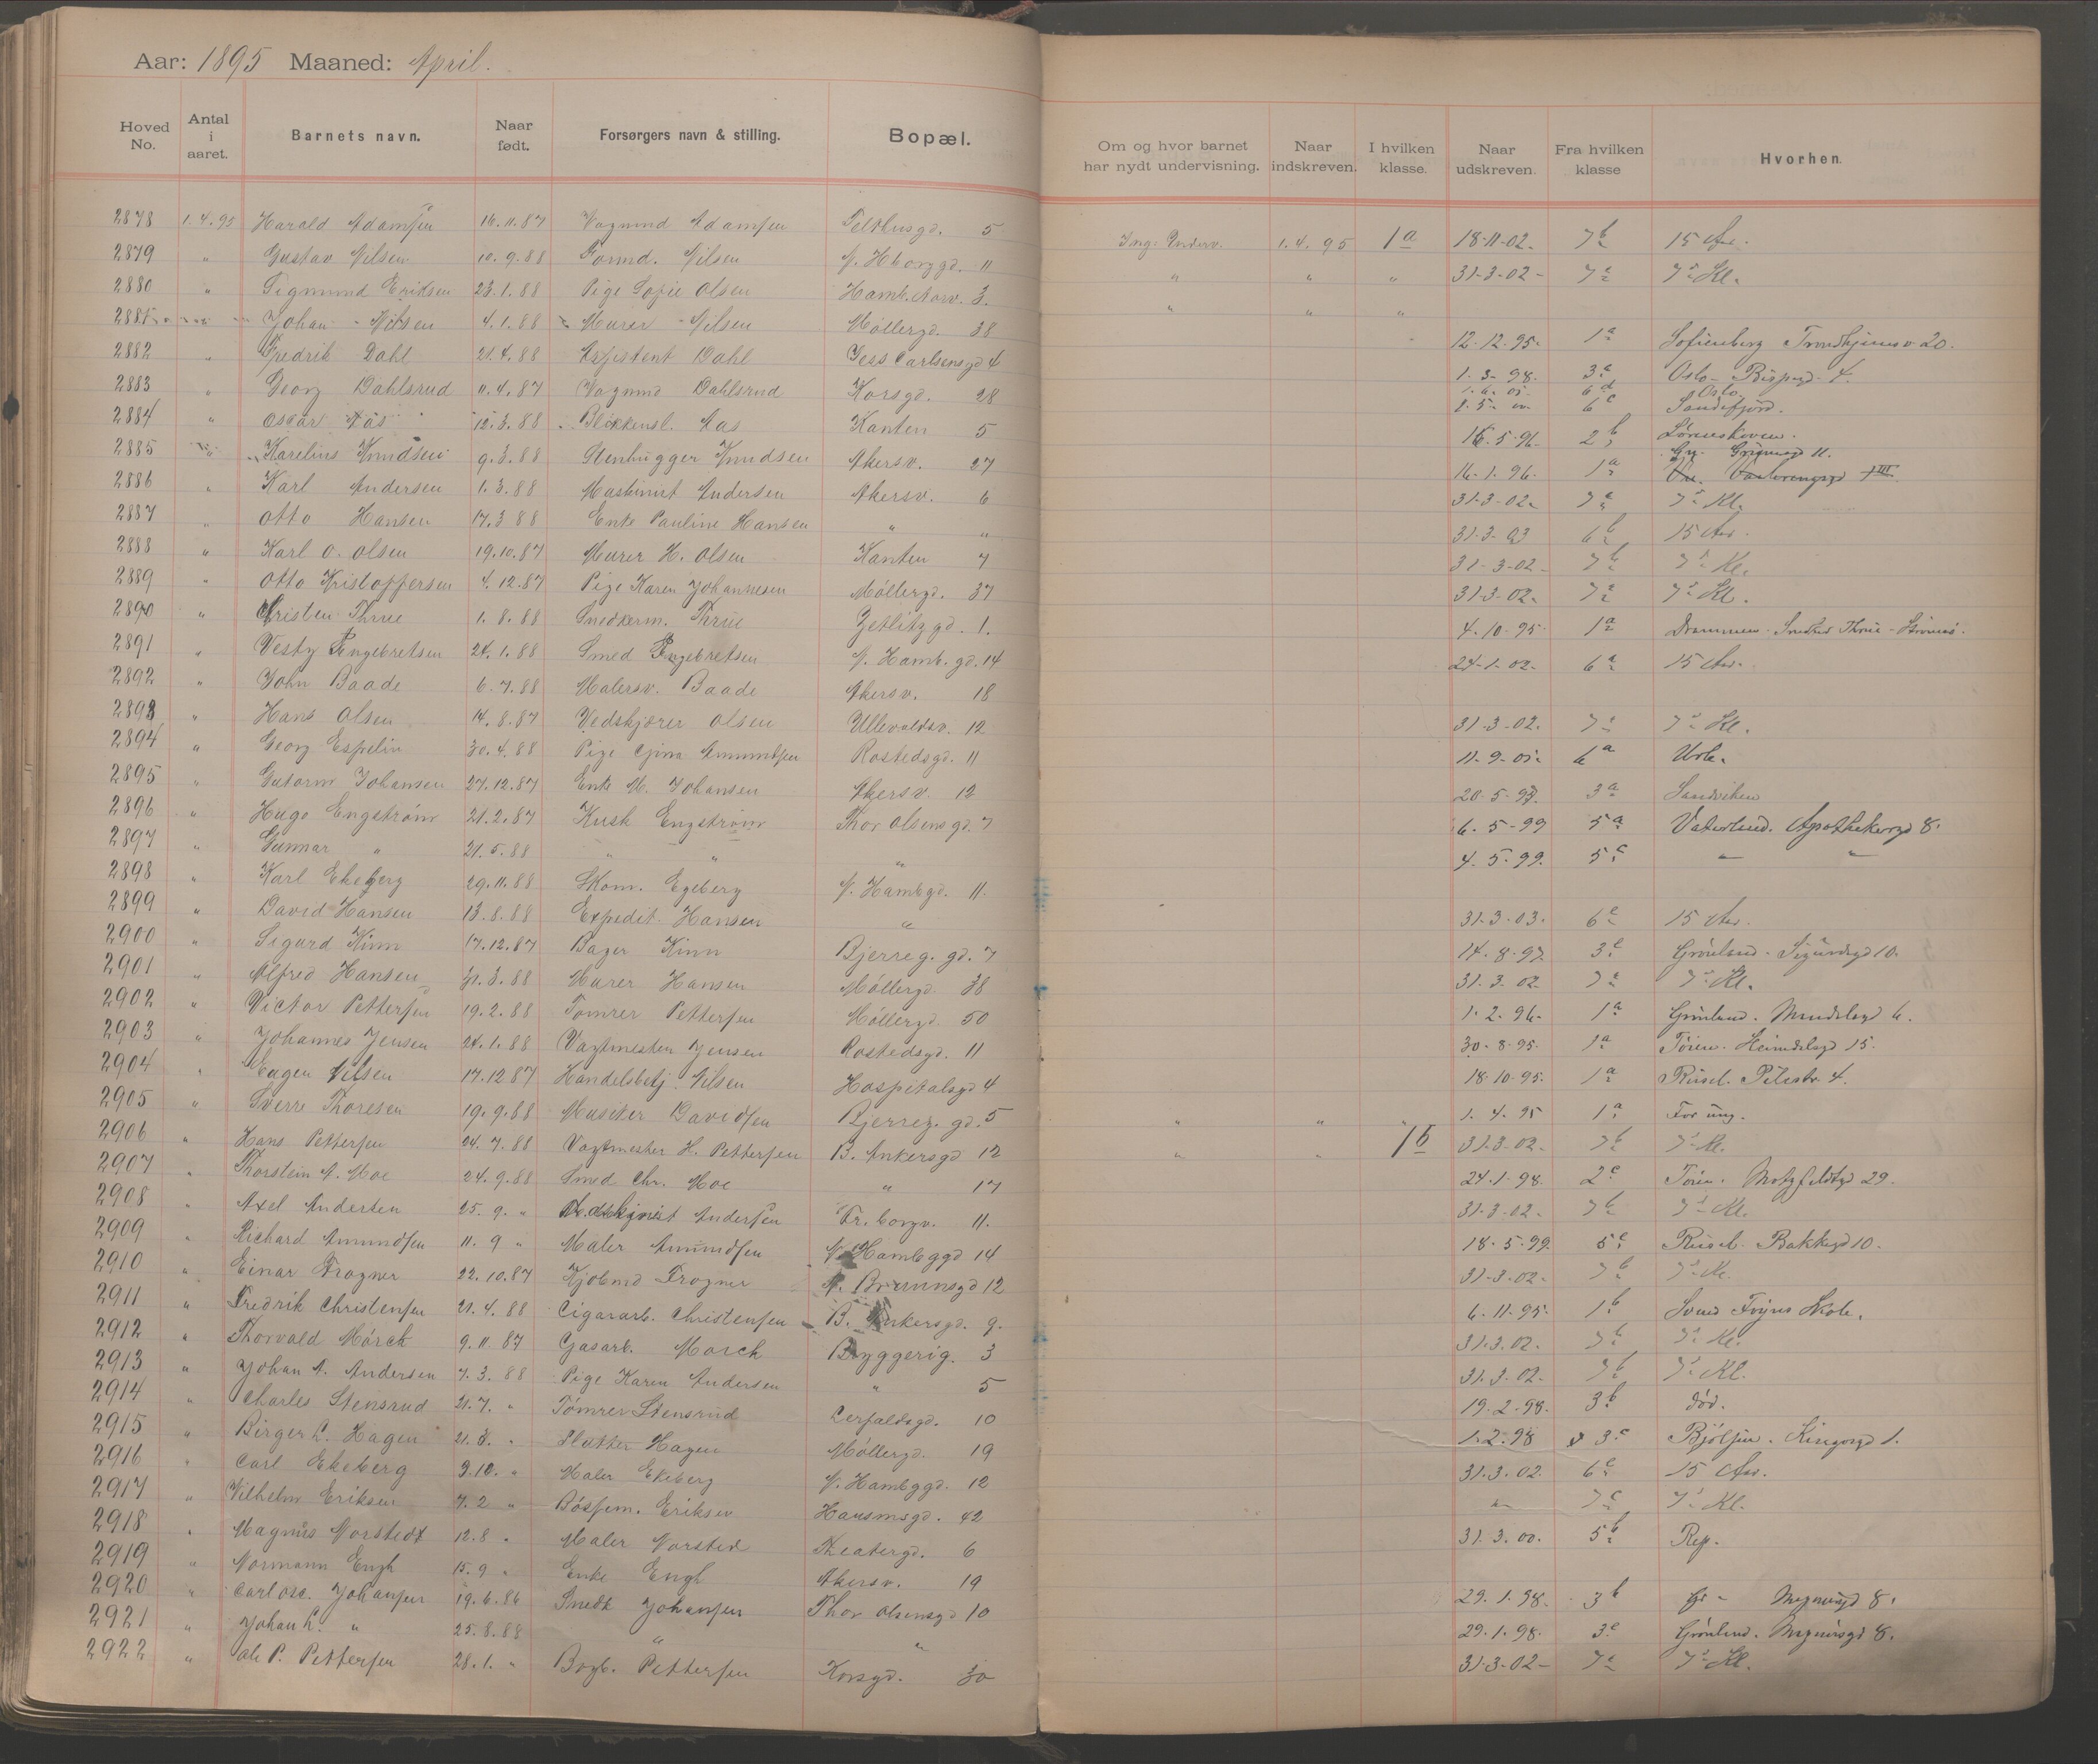 Aar: 1895 Maaned: April.
Hoved No. Antal i aaret. Barnets navn. Naar født. Forsørgers navn & stilling. Bopæl. Om og hvor barnet har nydt undervisning. Naar indskreven. I hvilken klasse. Naar udskreven. Fra hvilken klasse Hvorhen.
2878 1.4.95 Harald Adamsen 16.11.87 Vognmd Adamsen Telthusgd. 5 Ing. Underv. 1.4.95 1a 18-11-02. 7b 15 Aar.
2879 " Gustav Nilsen 10.9.88 Formd. Nilsen N. Hborggd. 11 " " " 31-3-02- 7a 7de Kl.
2880 " Sigmund Eriksen 23.1.88 Pige Sofie Olsen Hamb.korv. 3. " " "
2881 Johan Nilsen 4.1.88 Murer Nilsen Møllergd. 38 12-12-95. 1a Sofienberg Trondhjemsv 20.
2882 " Fredrik Dahl 21.4.88 Assistent Dahl Jess Carlsensgd 4 1.3-98. 3c Oslo- Bispegd. 4.
2883 " Georg Dahlsrud 11.4.87 Vognmd Dahlsrud Korsgd. 28 6d Oslo. 6c Sandefjord.
2884 " Oscar Aas 12.3.88 Blikkensl. Aas Kanten 5 16.5-96- 2b
2885 " Karelius Knudsen 9.3.88 Stenhugger Knudsen Akersv. 27 16-1-96. 1a
2886 " Karl Andersen 1.3.88 Maskinist Andersen Akersv. 6 31-3-02. 7a 7de Kl.
2887 " Otto Hansen 17.3 88 Enke Pauline Hansen " " 31-3-03 6b 15 Aar.
2888 " Karl O. Olsen 19.10.87 Murer H. Olsen Kanten 7 31-3-02- 7b 7de Kl.
2889 " Otto Kristoffersen 4.12.87 Pige Karen Johannesen Møllergd. 37 31-3-02. 7a 7de Kl.
2890 " Cristen Thrue 1.8.88 Snedkerm. Thrue Zetlitzgd. 1. 4.10-95. 1a Drammen - Snedker Thrue - Strømsø.
2891 " Vesty Engebretsen 24.1.88 Smed Engebretsen N. Hamb.gd. 14 24-1-02. 6a 15 Aar.
2892 " John Baade 6.7.88 Malersv. Baade Akersv. 18
2893 " Hans Olsen 14.8.87 Vedskjærer Olsen Ullevoldsv. 12 31-3-02. 7a 7de Kl.
2894 " Georg Espelin 30.4.88 Pige Gina Amundsen Rostedsgd. 11 11-9-01. 6a
2895 " Gutorm Johansen 27.12.87 Enke M. Johansen Akersv. 12 20-5-97. 3a Sandviken
2896 " Hugo Engstrøm 21.2.87 Kusk Engstrøm Thor Olsensgd. 7 6-5-99 5a Vaterland. Apothekergd 8.
2897 " Gunnar " 21.5.88 " " " 4.5-99. 5c " "
2898 " Karl Ekeberg 29.11.88 Skom. Egeberg N. Hambgd. 11.
2899 " David Hansen 13.8.88 Expedit. Hansen " 31-3-03. 6c 15 Aar.
2900 " Sigurd Kinn 17.12.87 Bager Kinn Bjerreg. gd. 7 14-8-97. 3c Grønland - Sigurdsgd 10.
2901 " Alfred Hansen 31.3.88 Murer Hansen Møllergd. 38 31.3.02. 7a 7de Kl.
2902 " Victor Pettersen 19.2.88 Tømrer Pettersen Møllergd. 50 1-2-96. 1a Grønland. Mandalsgd 6.
2903 " Johannes Jensen 24.1.88 Vagtmester Jensen Rostedsgd. 11 30-8-95. 1a Tøien. Heimdalsgd 15.
2904 " Eugen Nilsen 17.12 87 Handelsbetj. Nilsen Hospitalsgd 4 18-10-95. 1a Rusel. Pilestr. 4.
2905 " Sverre Thoresen 19.9.88 Musiker Davidsen Bjerreg. gd. 5 " " " 1.4.95 1a For ung.
2906 " Hans Pettersen 24.7.88 Vagtmester H. Pettersen B. Ankersgd 12 " " 1b 31-3-02. 7b 7de Kl.
2907 " Thorstein A. Moe 24.9.88 Smed Chr. Moe " 17 24-1-98. 2c Tøien. Motzfeldtsgd 29.
2908 " Axel Andersen 25.9. " Andersen Fr. borgv. 11. 31-3-02. 7b 7de Kl.
2909 " Richard Amundsen 11.9 " Maler Amundsen N. Hambggd 14 18-5-99. 5c Rusel. Bakkegd 10.
2910 " Einar Frogner 22.10.87 Kjøbmd Frogner N. Brunnsgd 12 31-3-02. 7b 7de Kl.
2911 " Fredrik Christensen 21.4.88 Cigararb. Christensen B. Ankersgd. 9. 6.11-95. 1b Svend Foyns Skole.
2912 " Thorvald Mørch 9.11.87 Gasarb. Mørch Bryggerig. 3 31.3.02. 7b 7de Kl.
2913 " Johan A. Andersen 7.3.88 Pige Karen Andersen " 5 31.3-02. 7b 7de Kl.
2914 " Charles Stensrud 21.7. " Tømrer Stensrud Calfaldsgd. 10 19.2-98. 3b død.
2915 " Birger L. Hagen 21.3. " Slatter Hagen Møllergd. 19 1.2.98 3c Bjølsen. Kingosgd 1.
2916 " Carl Ekeberg 9.12. " Maler Ekeberg N. Hambggd. 12 31.3.02. 6c 15 Aar.
2917 " Vilhelm Eriksen 7.2 " Bøssem. Eriksen Hausmsgd. 42 " 7c 7de Kl.
2918 " Magnus Norstedt 12.8 " Maler Norsted Theatergd. 6 31.3.00. 5b Rep.
2919 " Normann Engh 15.9 " Enke Engh Akersv. 19
2920 " Carl Osc. Johansen 19.6.86 Snedk Johansen Thor Olsensgd 10 29.1.98. 3b Gr - Magnusgd 8.
2921 " Johan L. " 25.8.88 " " 29.1.98. 3c Grønland. Magnusgd 8.
2922 " Ole P. Pettersen 28.1. " Bogb. Pettersen Korsgd. 30 31-3-02- 7a 7de Kl.